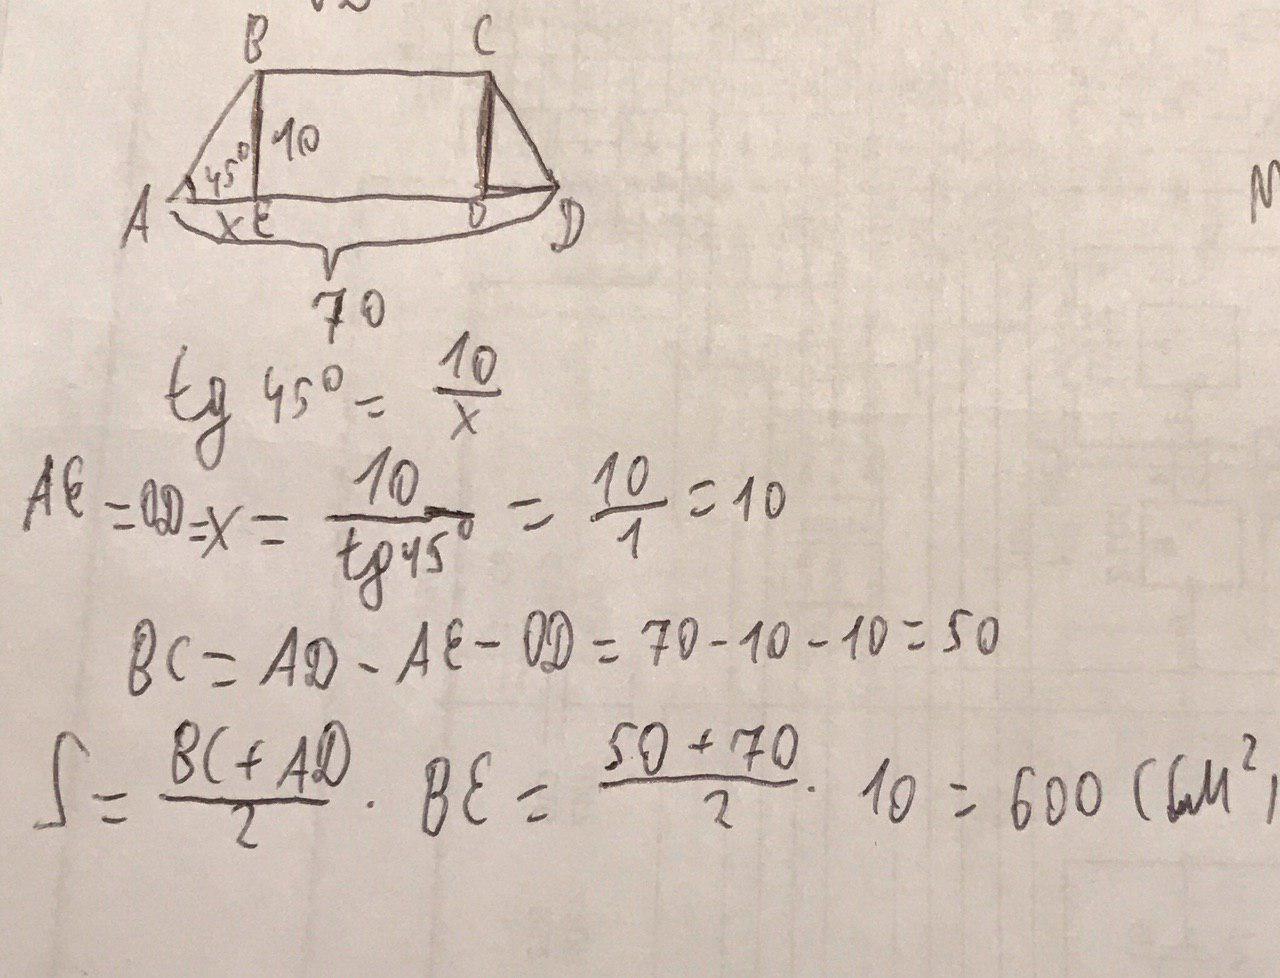 B C
45° 10
A x E O D
70
tg 45° = 10/x
AE = OD = x = 10/tg45° = 10/1 = 10
BC = AD - AE - OD = 70 - 10 - 10 = 50
S = (BC + AD)/2 · BE = (50 + 70)/2 · 10 = 600 (см²)